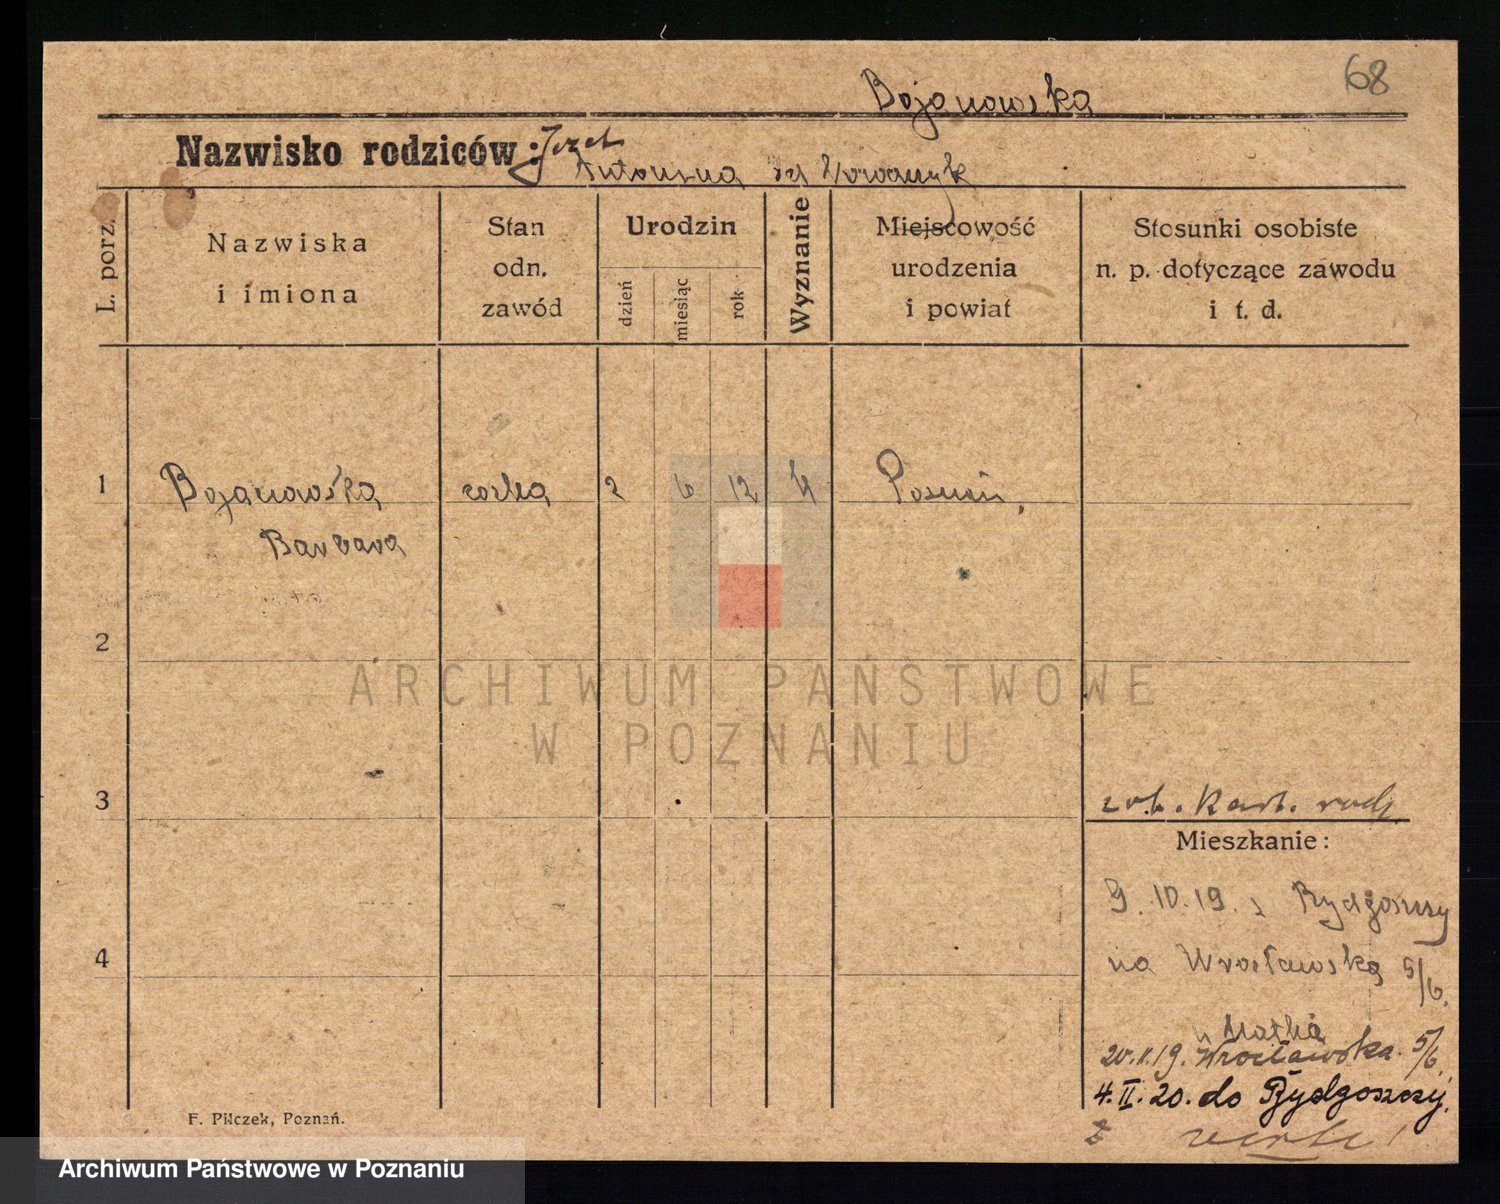 68
Bojanowska
Nazwisko rodziców: Józef
Antonina
L. porz.
Nazwiska
i imiona
Stan
odn.
zawód
Urodzin
dzień
miesiąc
rok
Wyznanie
Miejscowość
urodzenia
i powiat
Stosunki osobiste
n. p. dotyczące zawodu
i t. d.
1 Bojanowska córka 2 6 12 Poznań,
Barbara
2
ARCHIWUM PAŃSTWOWE
W POZNANIU
3
zob. kart. rodz.
Mieszkanie:
9.10.19. z Bydgoszczy
4
na Wrocławską 5/6.
Matka
Wrocławska 5/6.
4. II. 20. do Bydgoszczy.
F. Pilczek, Poznań.
Archiwum Państwowe w Poznaniu